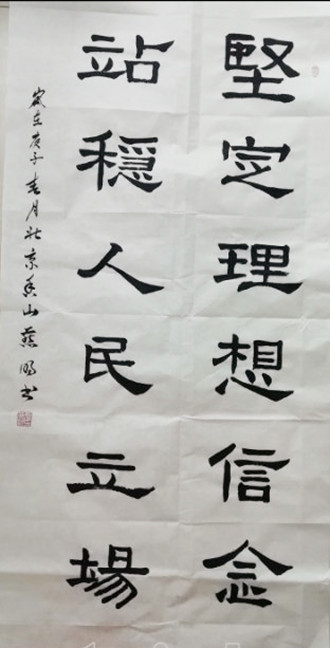 堅定理想信念
站穩人民立場
歲在庚子春月於京香山燕鳴書